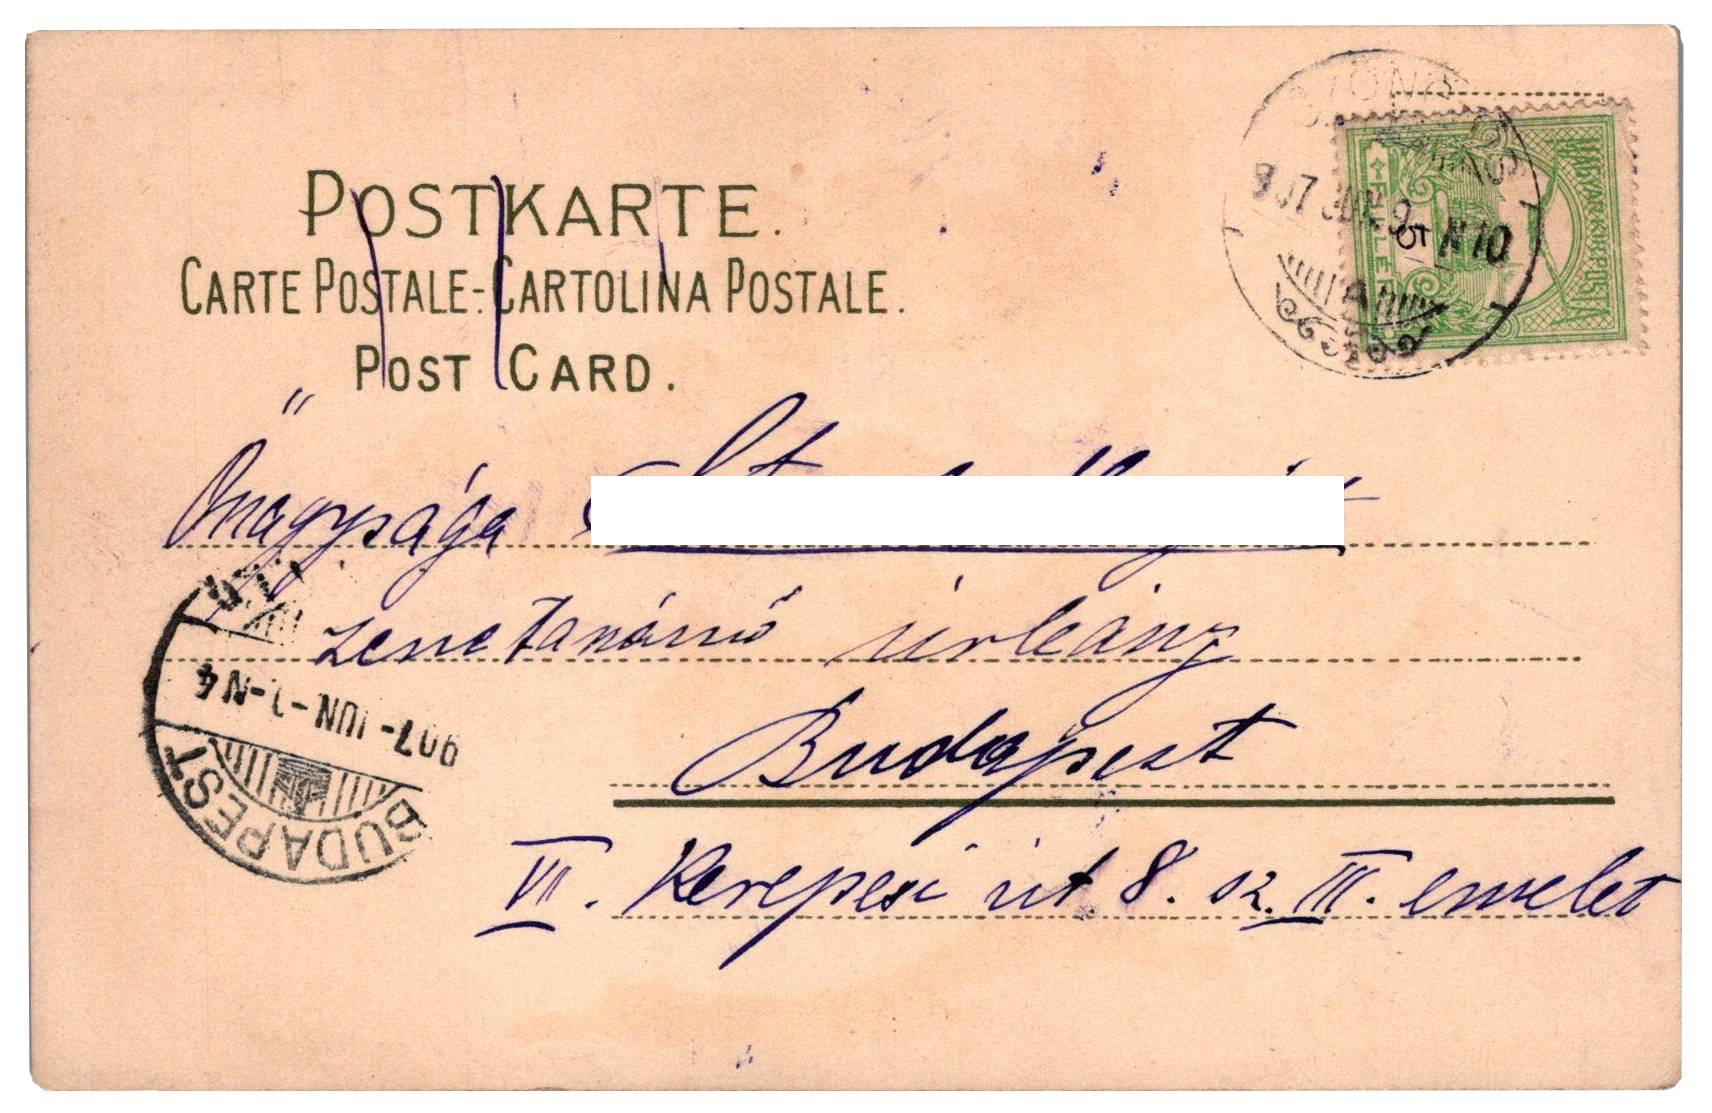 POSTKARTE.
CARTE POSTALE-CARTOLINA POSTALE.
POST CARD.
MAGYAR KIR. POSTA
FILLÉR
5
907 JUN. 9 N10
A
Őnagysága
zenetanárnő úrleány
Budapest
VII. Kerepesi út 8. sz. III. emelet
907-JUN-
-N4
BUDAPEST